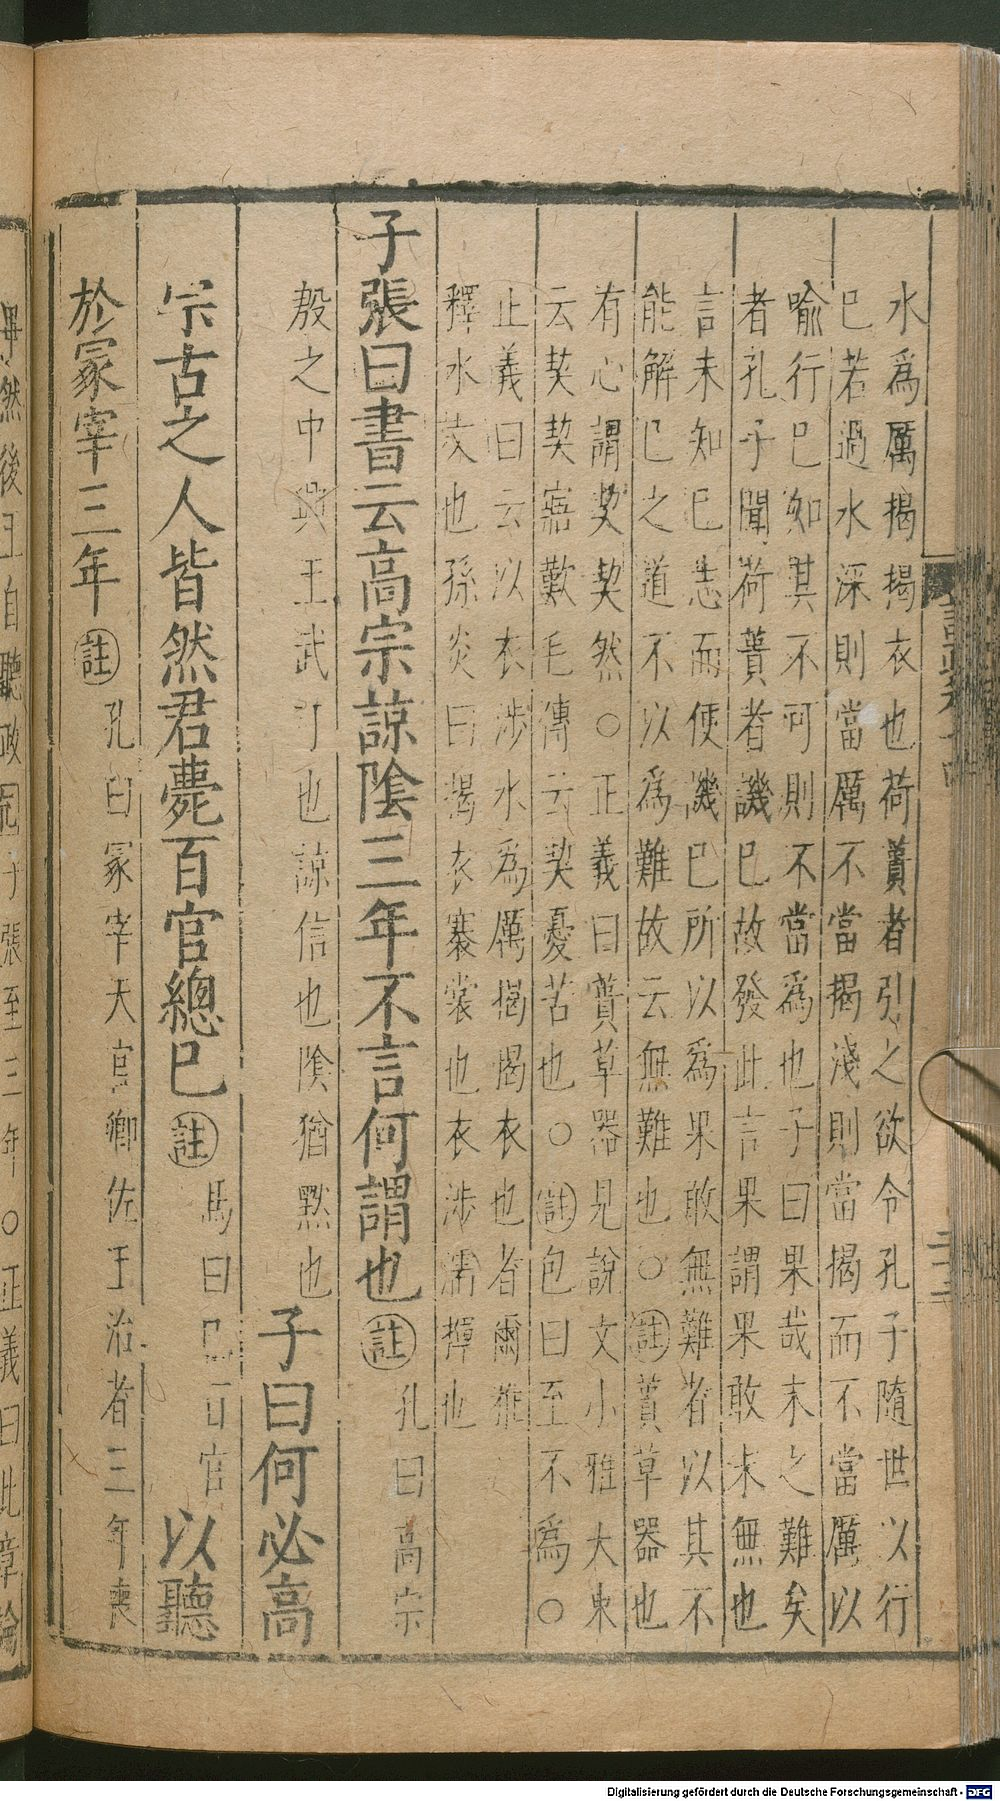 水爲厲揭揭衣也荷蕢者引之欲令孔子隨世以行
已若過水深則當厲不當揭淺則當揭而不當厲以
喻行已知其不可則不當爲也子曰果哉末之難矣
者孔子聞荷蕢者譏已故發此言果謂果敢末無也
言未知已志而便譏已所以爲果敢無難者以其不
能解已之道不以爲難故云無難也○註蕢草器也
有心謂契契然○正義曰蕢草器見說文小雅大東
云契契寤歎毛傳云契憂苦也○註包曰至不爲○
正義曰云以衣涉水爲厲揭揭衣也者爾雅
釋水文也孫炎曰揭衣褰裳也衣涉濡褌也
子張曰書云高宗諒陰三年不言何謂也註孔曰高宗
殷之中興王武丁也諒信也陰猶默也子曰何必高
宗古之人皆然君薨百官總已註馬曰已百官以聽
於冢宰三年註孔曰冢宰天官卿佐王治者三年喪
畢然後王自聽政 子張至三年○正義曰此章論
二十三
Digitalisierung gefördert durch die Deutsche Forschungsgemeinschaft - DFG